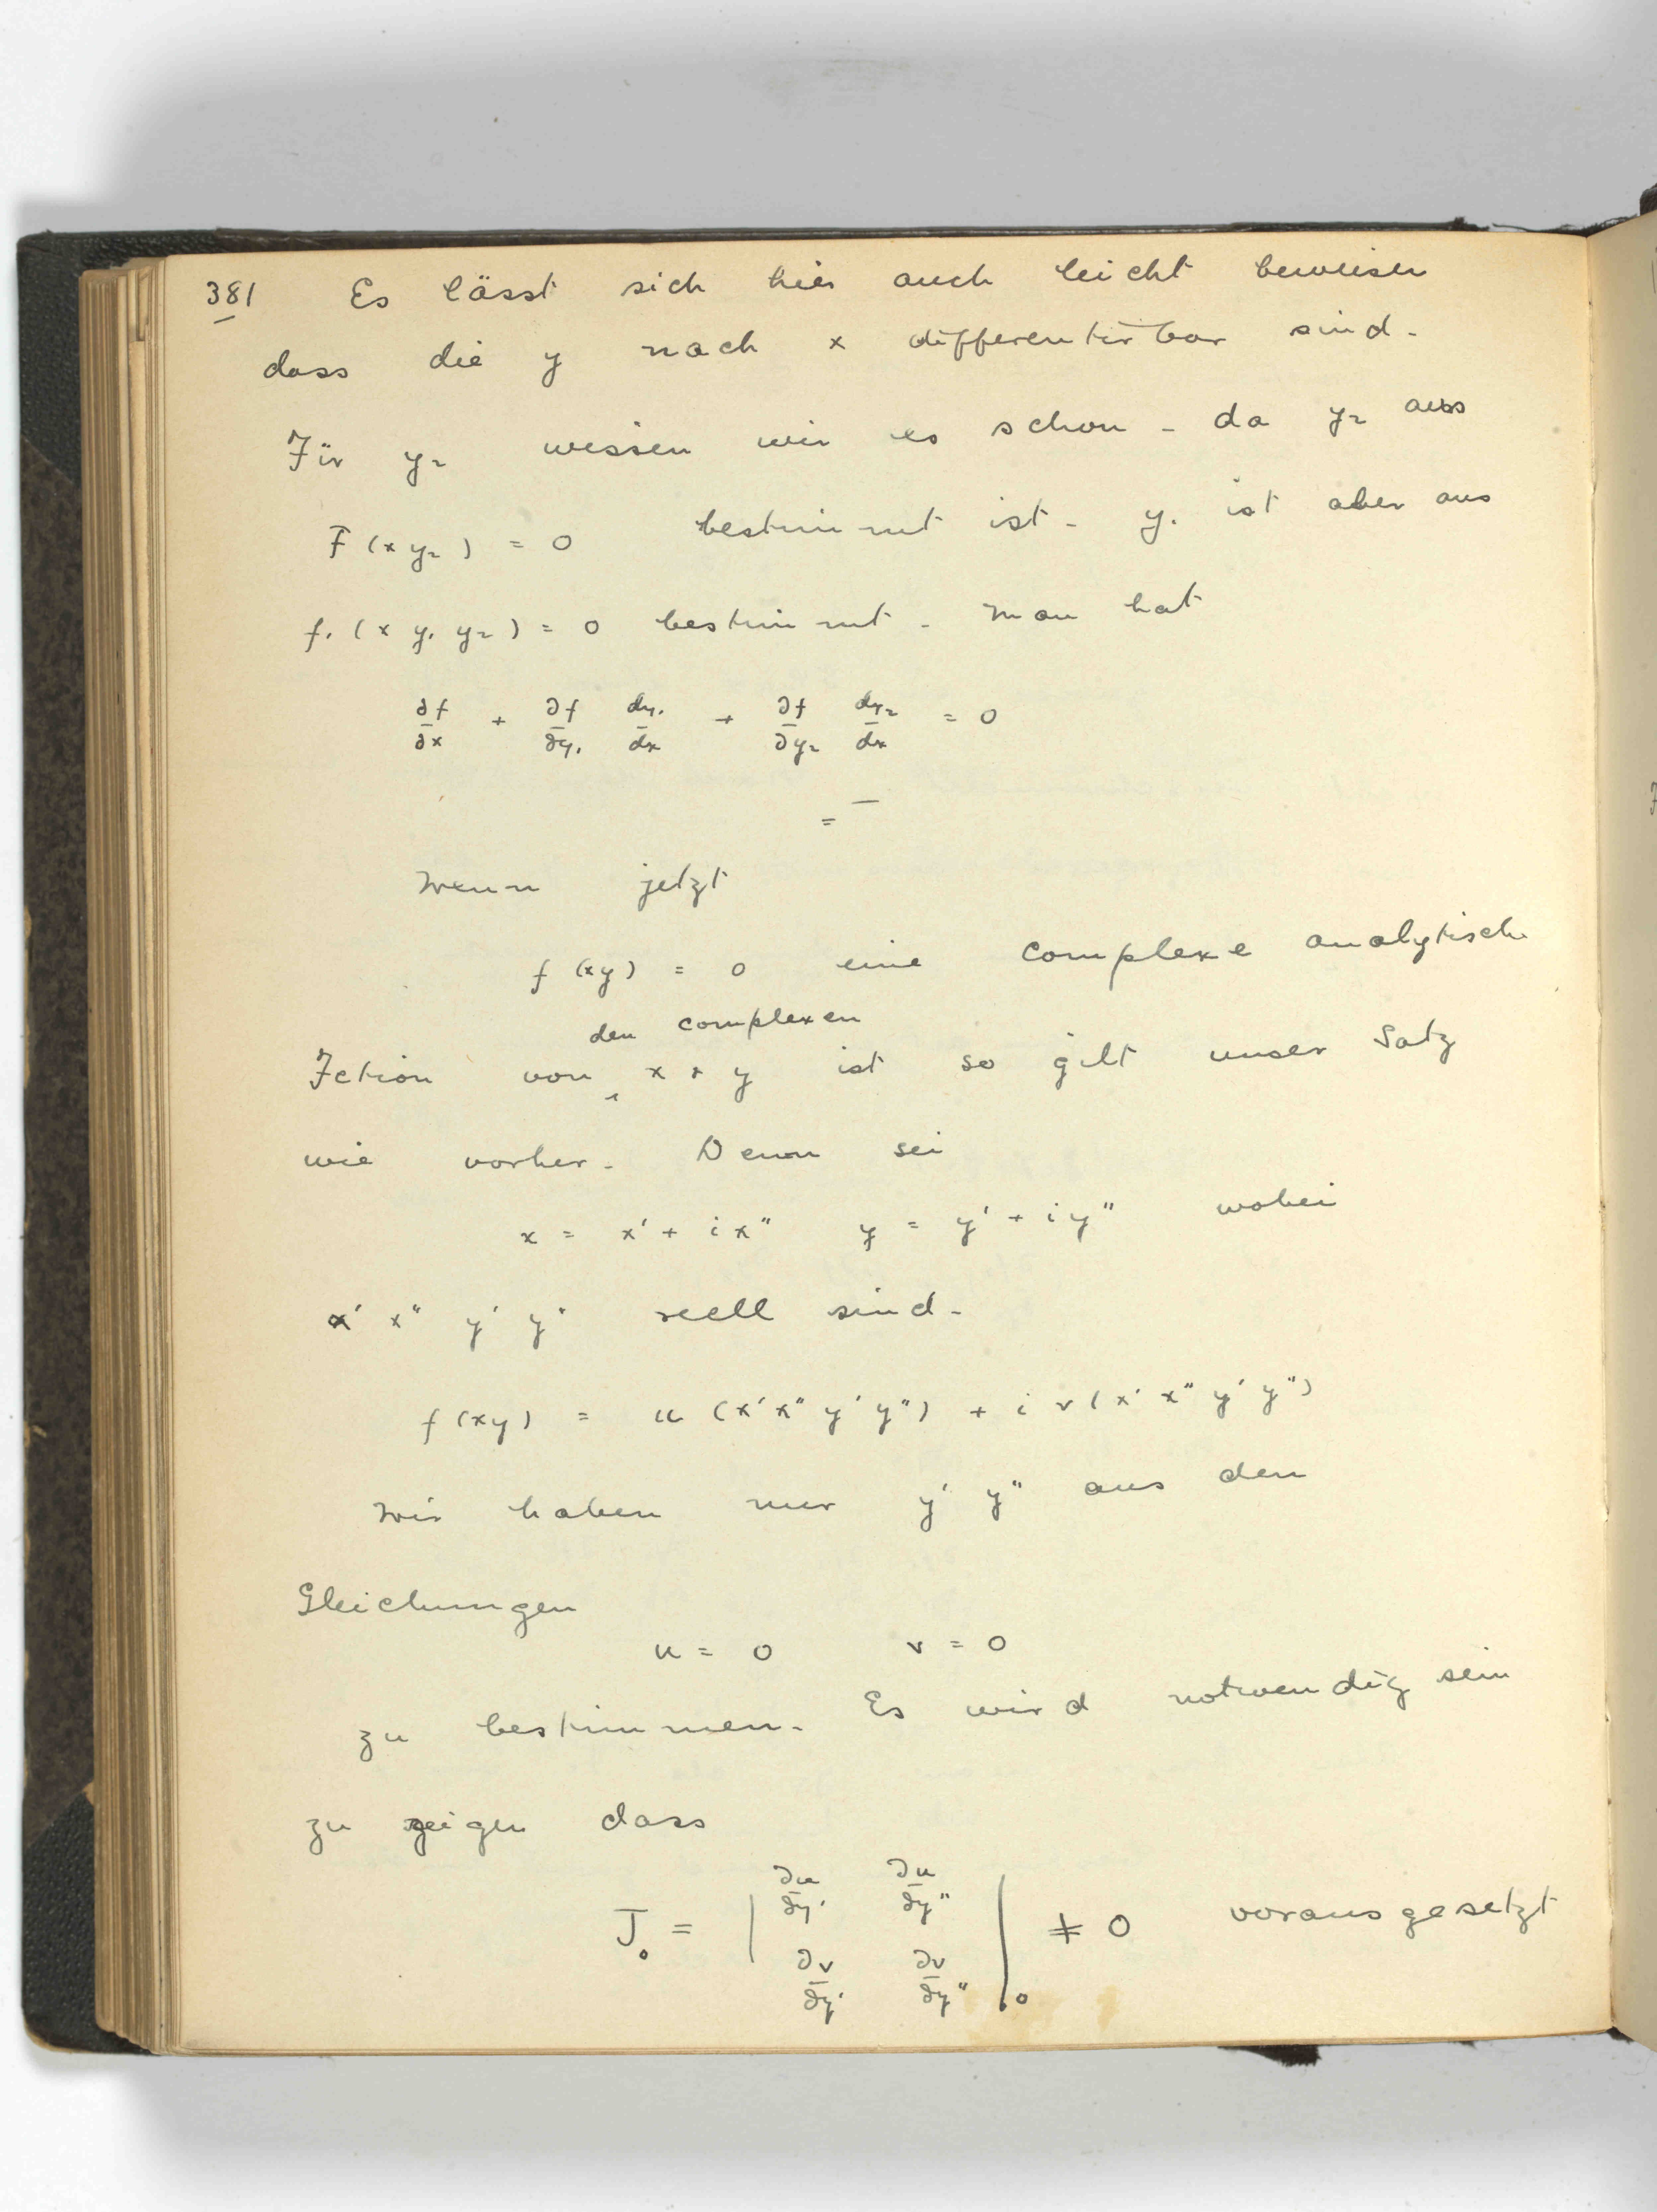 381 Es lässt sich hier auch leicht beweisen
dass die y nach x differentirbar sind.
Für y₂ wissen wir es schon - da y₂ aus
F(x y₂) = 0 bestimmt ist. y₁ ist aber aus
f₁(x y₁ y₂) = 0 bestimmt. Man hat
∂f/∂x + ∂f/∂y₁ dy₁/dx + ∂f/∂y₂ dy₂/dx = 0
Wenn jetzt
f(xy) = 0 eine complexe analytische
den complexen
Fction von x + y ist so gilt unser Satz
wie vorher. Denn sei
x = x' + i x" y = y' + i y" wobei
x' x" y' y" reell sind.
f(xy) = u (x' x" y' y") + i v (x' x" y' y")
Wir haben nur y' y" aus den
Gleichungen
u = 0 v = 0
zu bestimmen. Es wird notwendig sein
zu zeigen dass
J₀ = | ∂u/∂y' ∂u/∂y" ∂v/∂y' ∂v/∂y" |₀ ≠ 0 vorausgesetzt